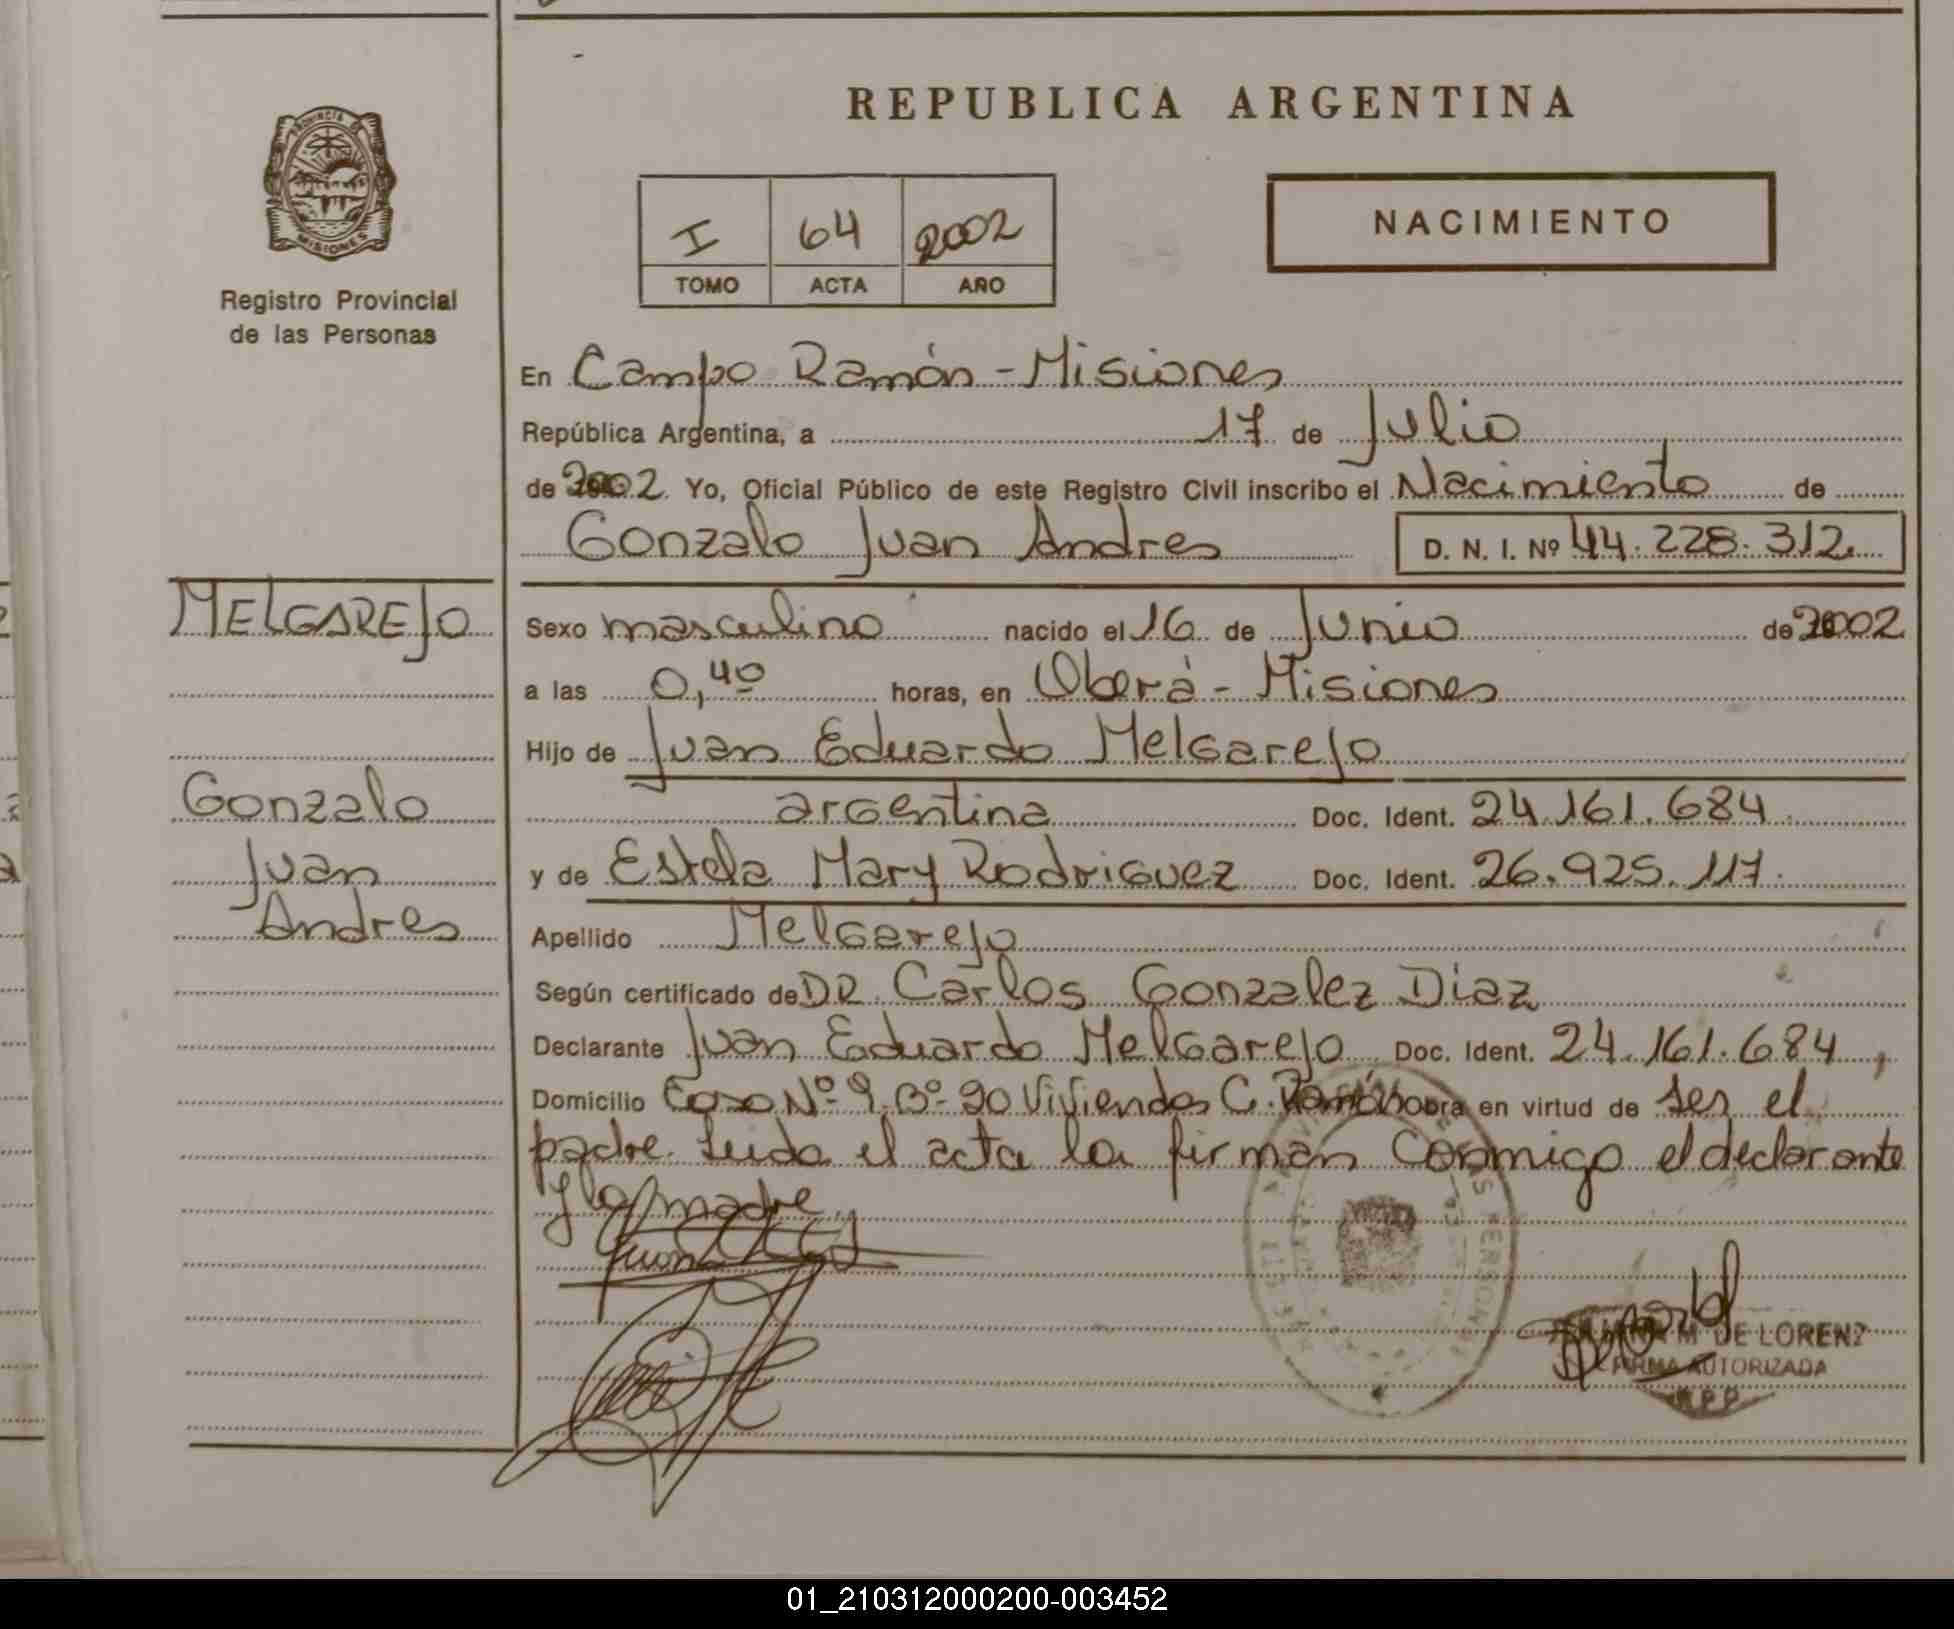 REPUBLICA ARGENTINA
PROVINCIA DE
MISIONES
Registro Provincial
de las Personas
I 64 2002
TOMO ACTA AÑO
NACIMIENTO
En Campo Ramón - Misiones
República Argentina, a 17 de Julio
de 2002 Yo, Oficial Público de este Registro Civil inscribo el Nacimiento de
Gonzalo Juan Andres D. N. I. Nº 44.228.312
MELGAREJO
Gonzalo
Juan
Andres
Sexo masculino nacido el 16 de Junio de 2002
a las 0,40 horas, en Oberá - Misiones
Hijo de Juan Eduardo Melgarejo
argentina Doc. Ident. 24.161.684
y de Estela Mary Rodriguez Doc. Ident. 26.925.117
Apellido Melgarejo
Según certificado de DR. Carlos Gonzalez Diaz
Declarante Juan Eduardo Melgarejo Doc. Ident. 24.161.684,
Domicilio Casa Nº 9 Bº 20 Viviendas C. Ramón obra en virtud de ser el
padre. Leida el acta la firman conmigo el declarante
y la madre
M. DE LORENZ
FIRMA AUTORIZADA
R.P.P.
01_210312000200-003452